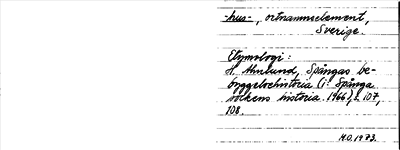 -hus-, ortnamnselement,
Sverige.
Etymologi:
H. Ahnlund, Spångas be-
byggelsehistoria (i: Spånga
sockens historia 1966), s. 107,
108.
M.O. 1973.